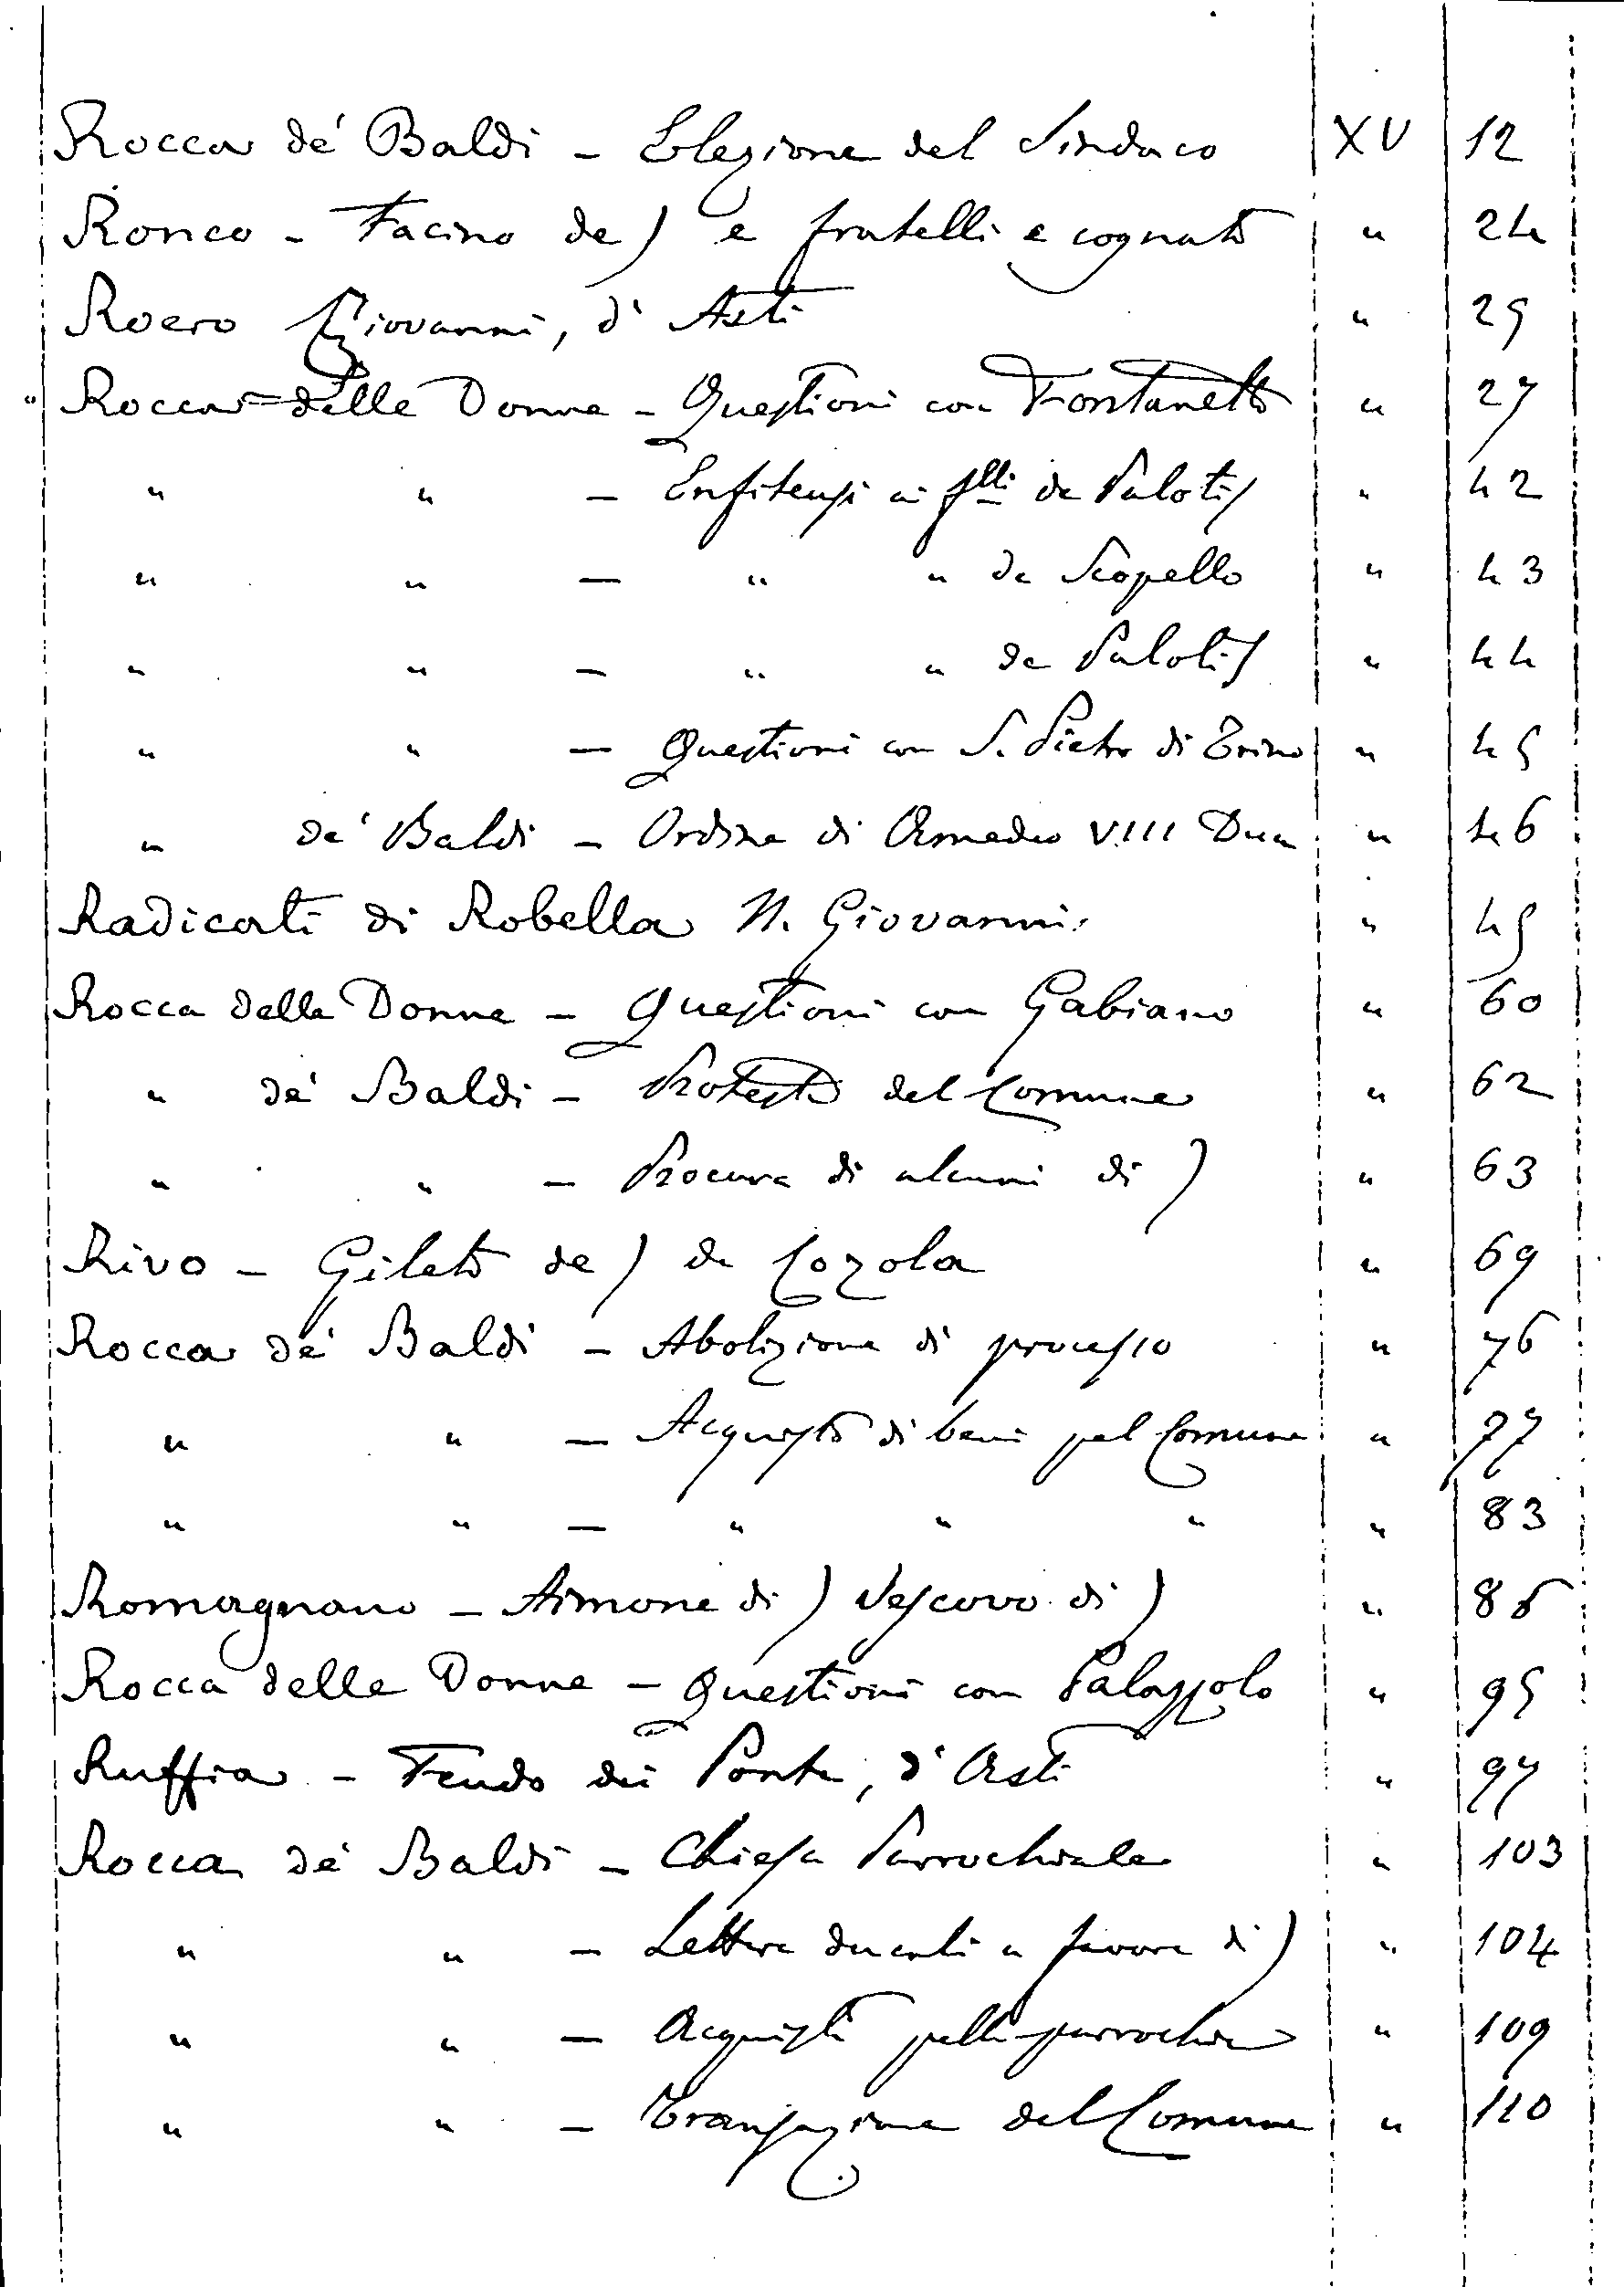 Rocca de' Baldi - Elezione del Sindaco XV 12
Ronco - Facino de) e fratelli e cognato " 24
Roero Giovanni, d'Asti " 25
" Rocca=delle Donne - Questioni con Fontanetto " 27
" " - Enfiteusi ai flli de Palotis " 42
" " - " " de Scopello " 43
" " - " " de Palotis " 44
" " - Questioni con S. Pietro di Trino " 45
" de' Baldi - Ordine di Amedeo VIII Duca " 46
Radicati di Robella N. Giovanni " 49
Rocca delle Donne - Questioni con Gabiano " 60
" de' Baldi - Protesta del Comune " 62
" " - Procura di alcuni di) " 63
Rivo - Gileto de) de Cozola " 69
Rocca de' Baldi - Abolizione di processo " 76
" " - Acquisto di beni pel Comune " 77
" " - " " " " 83
Romagnano - Aimone di) Vescovo di) " 86
Rocca delle Donne - Questioni con Palazzolo " 95
Ruffia - Feudo dei Ponte, d'Asti " 97
Rocca de' Baldi - Chiesa Parrochiale " 103
" " - Lettere ducali a favore di) " 104
" " - Acquisti pella parrochia " 109
" " - Transazione del Comune " 110